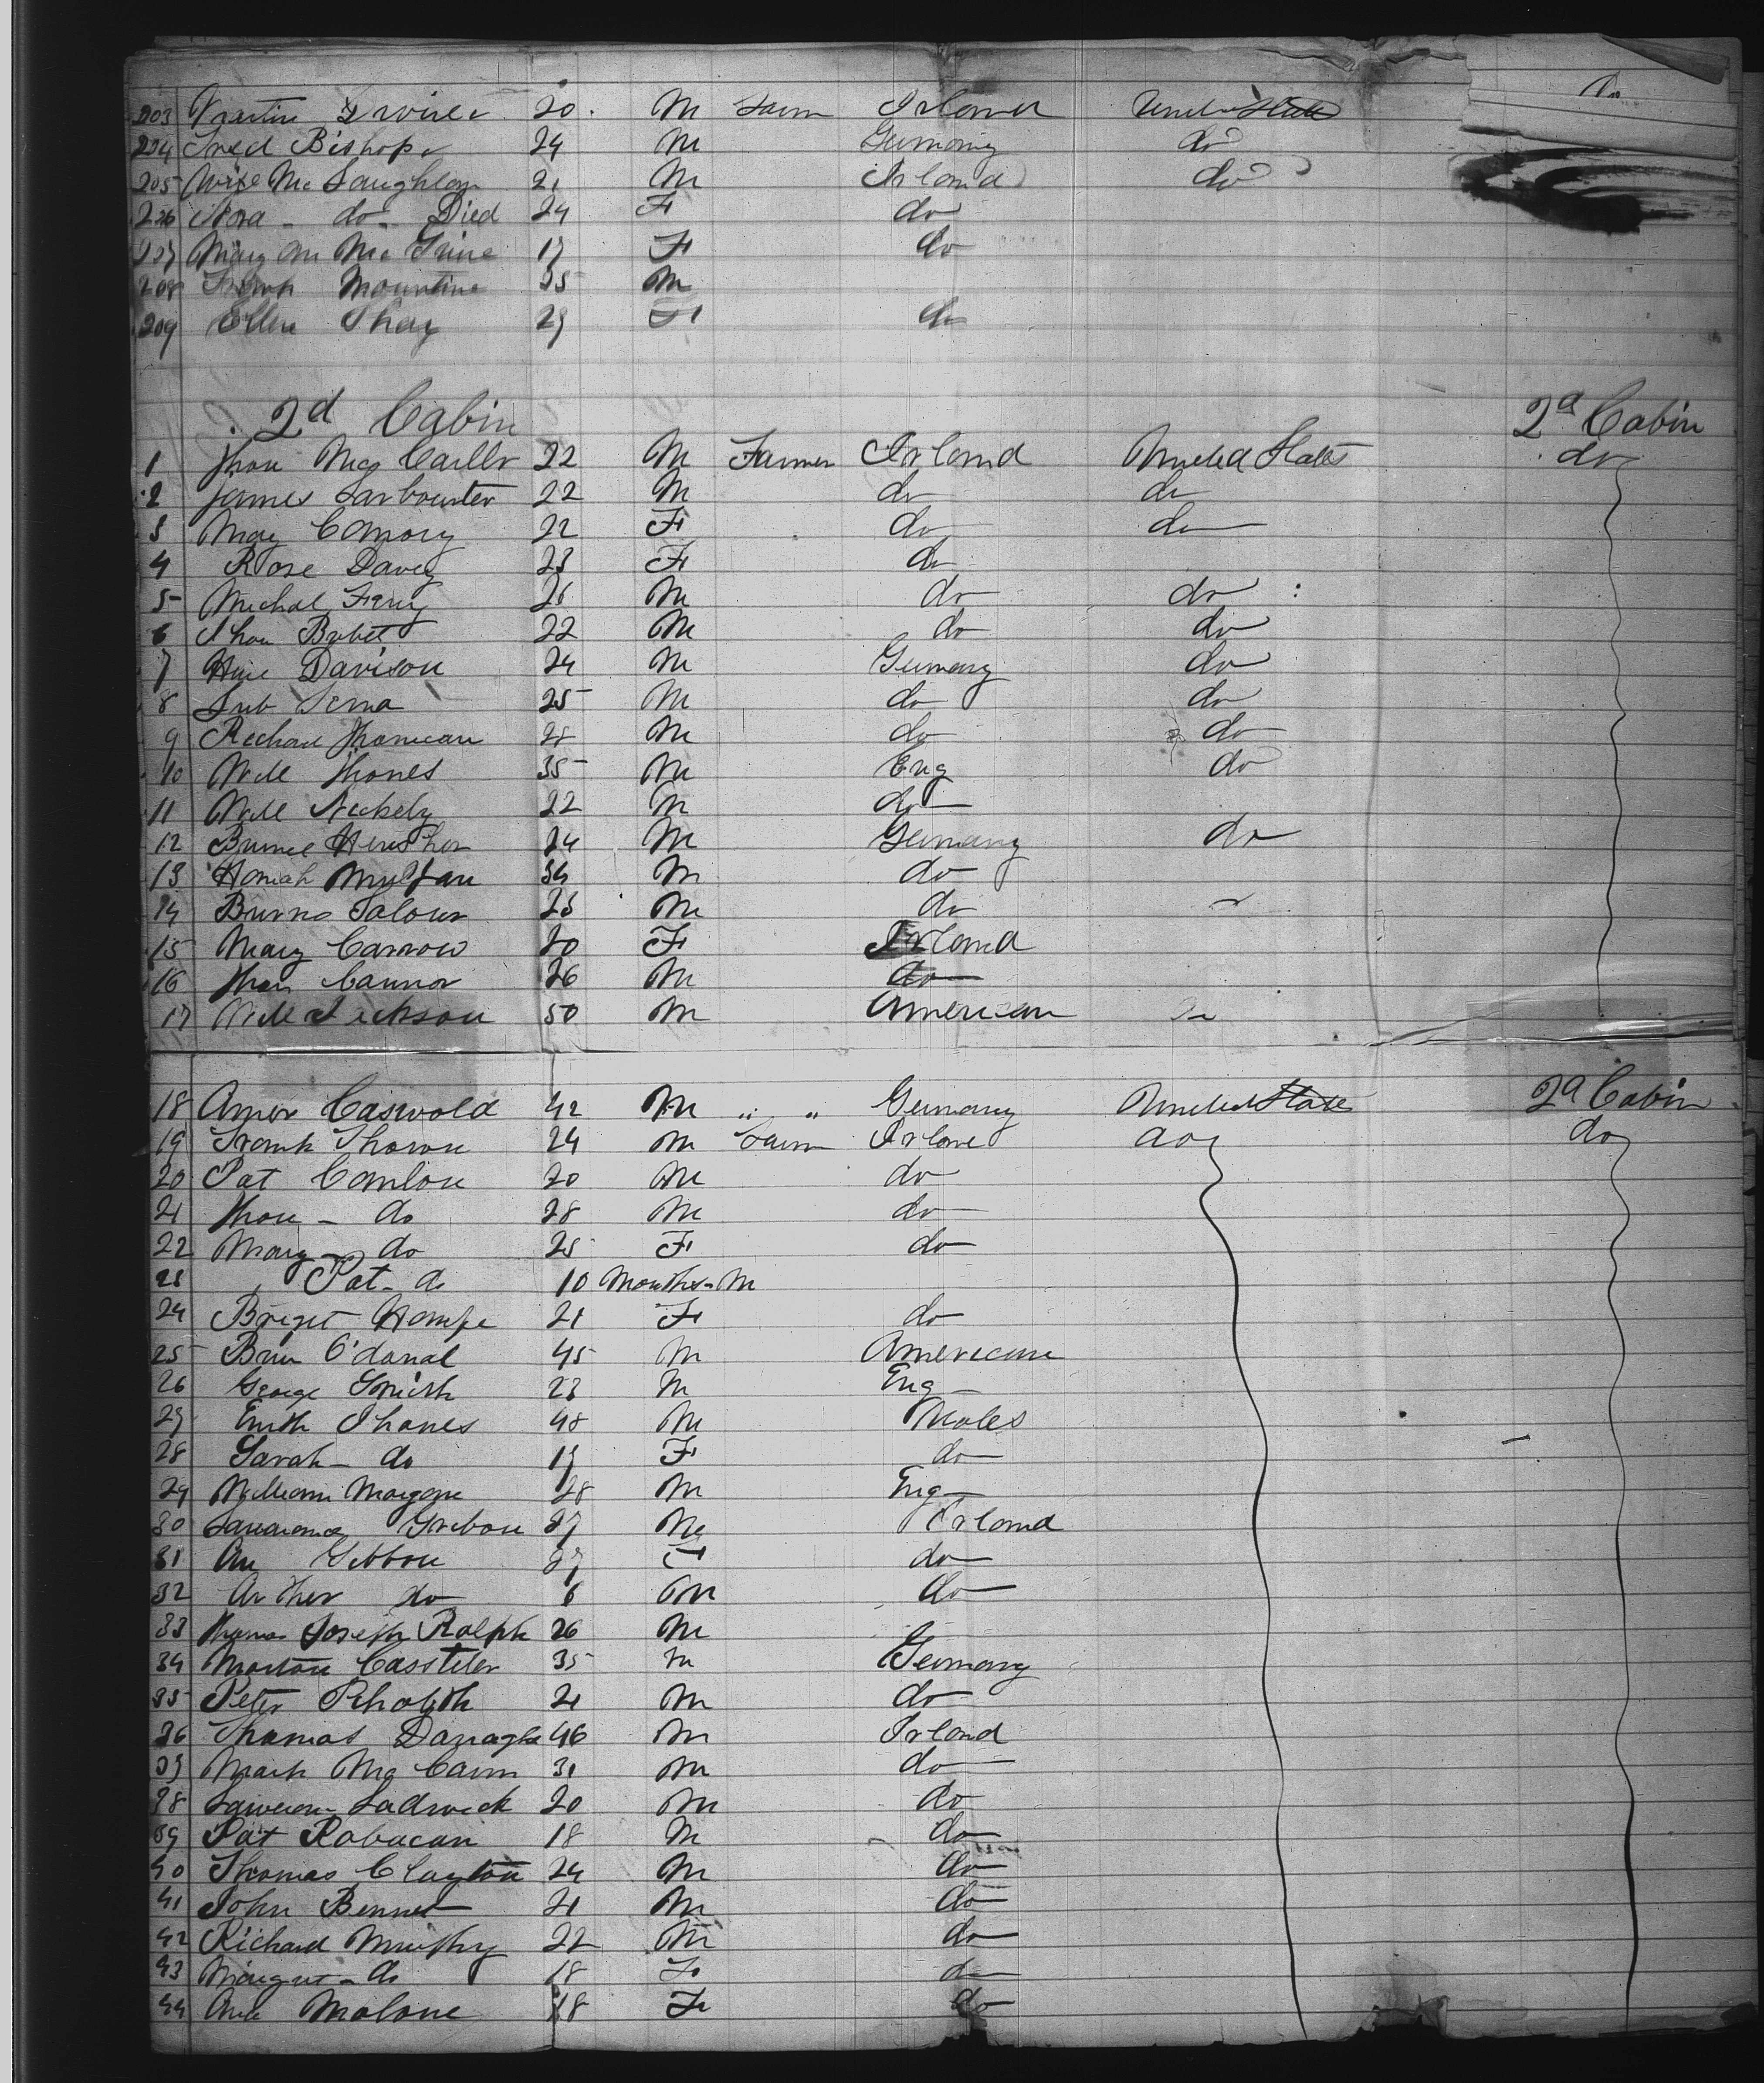 203 Martin Dwire 20. M Farm Irland United States Do
204 Fred Bishop 24 M Germany do
205 McLaughlan 21 M Irland do
206 Nora - do - Died 24 F do
207 Mary An Mc 17 F do
208 Frank Mountine 25 M
209 Ellen Shay 27 F do
2d Cabin 2d Cabin
1 Jhon Mc 22 M Farmer Irland United States do
2 James 22 M do do
3 May Conory 22 F do do
4 Rose Davey 23 F do
5 Michal Fery 21 M do do
6 Jhon 22 M do do
7 Davison 24 M Germany do
8 25 M do do
9 Richard 28 M do do
10 Will Jhones 35 M Eng do
11 Will 22 M do
12 24 M Germany do
13 34 M do
14 Burno 23 M do
15 Mary Carrow 20 F Irland
16 Jhon Cannor 26 M do
17 Will Jickson 50 M American do
18 Amer Caswold 42 M " " Germany United States 2d Cabin
19 Frank Thoron 24 M Farm Irland do do
20 Pat Conlon 20 M do
21 Jhon - do 28 M do
22 Mary - do 25 F do
23 Pat - do 10 Months - M
24 Briget 21 F do
25 Brin O'donal 45 M American
26 George Smith 23 M Eng
27 Jhones 48 M Wales
28 Sarah - do 17 F do
29 William Morgan 28 M Eng
30 Gibbon 27 M Irland
31 An Gibbon 27 F do
32 Arther do 6 M do
33 Thomas Joseph Ralph 26 M
34 Casstiler 35 M Germany
35 Peter 21 M do
36 Thomas Darragh 46 M Irland
37 Mark Mc Cann 31 M do
38 Ladwick 20 M do
39 Pat Rabacan 18 M do
40 Thomas Clayton 24 M do
41 John Bennet 21 M do
42 Richard Murphy 22 M do
43 Margret - do 18 F do
44 Malone 18 F do